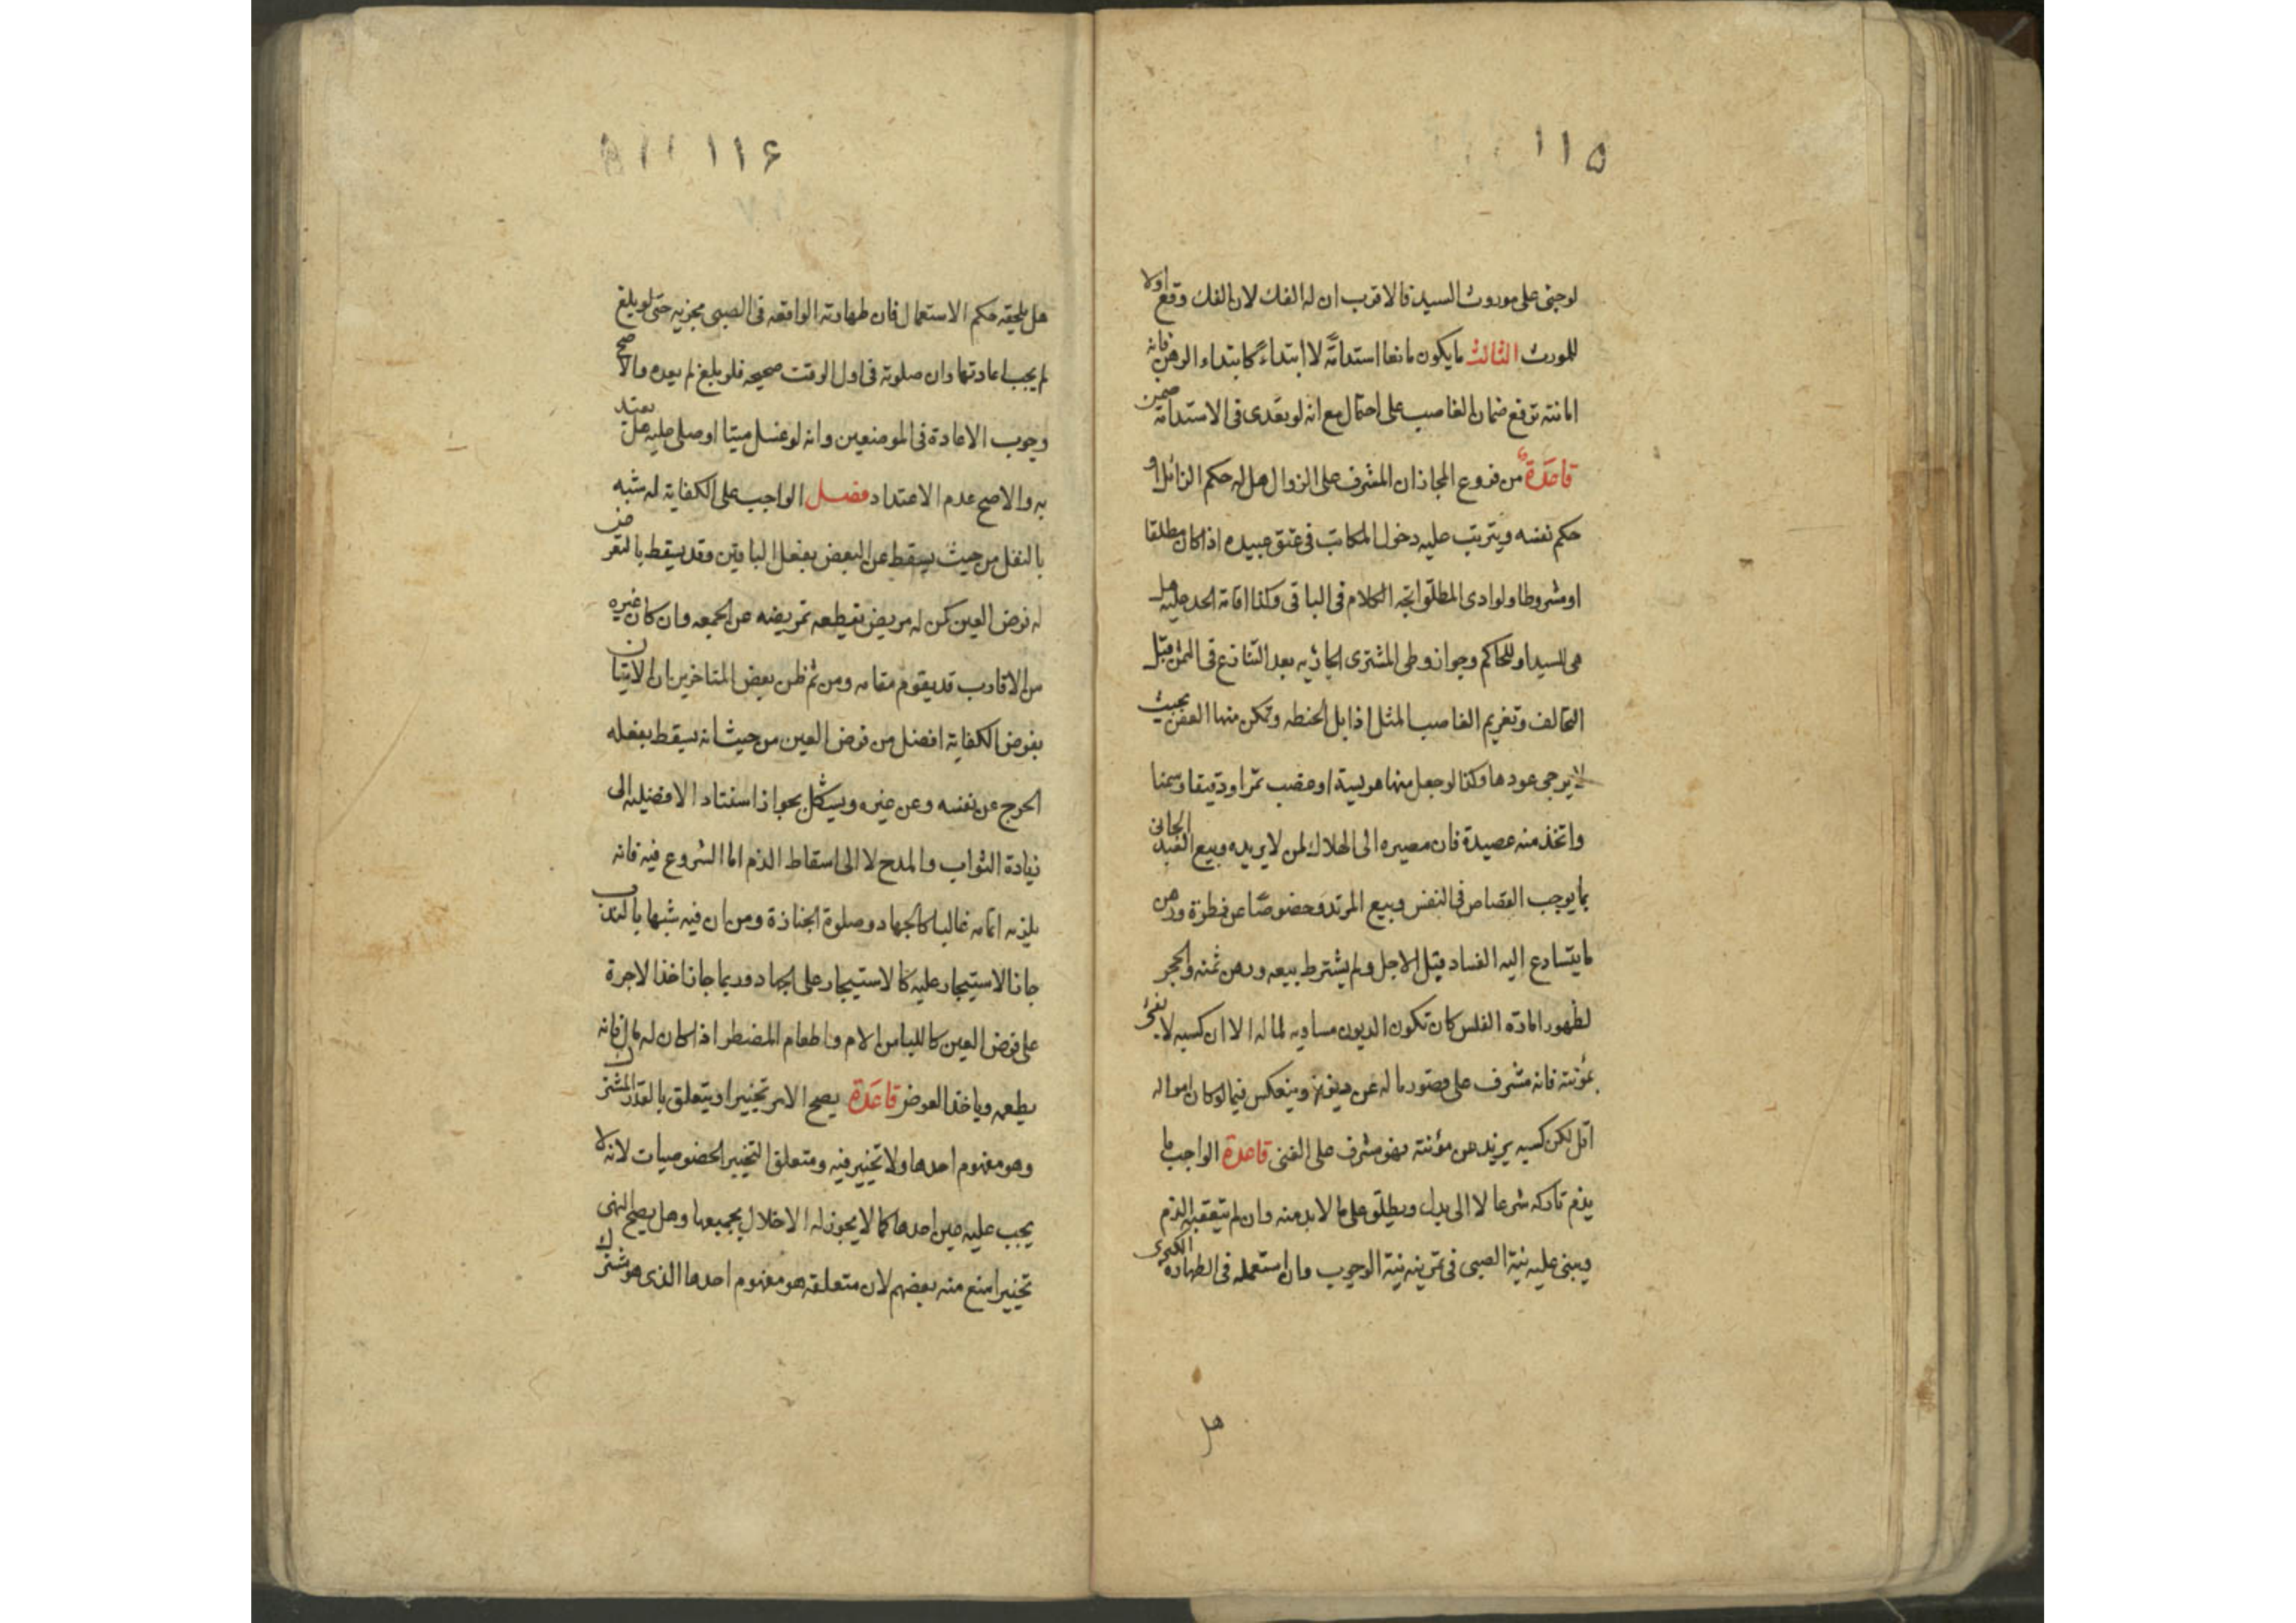 ١١٥
لو جنى على موروث السيد فالاقرب ان له الفك لان الفك وقع اولا
للمورث الثالث ما يكون مانعا استدامةً لا ابتداءً كابتداء الرهن فانه
امانته ترفع ضمان الغاصب على احتمال مع انه لو تعدى فى الاستدامة ضمن
قاعدة من فروع المجاز ان المشرف على الزوال هل له حكم الزائل او
حكم نفسه ويترتب عليه دخول المكاتب فى عتق عبيده اذا كان مطلقا
او مشروطا ولو ادى المطلق اتجه الكلام فى الباقى وكذا اقامة الحد عليه هل
هى للسيد او للحاكم وجواز وطى المشترى الجارية بعد التنازع فى الثمن قبل
التحالف وتغريم الغاصب المثل اذا بل الحنطه وتمكن منها العفن بحيث
لا يرجى عودها وكذا لو جعل منها هريسة او غصب تمرا ودقيقا وسمنا
واتخذ منه عصيدة فان مصيره الى الهلاك لمن لا يريده وبيع العبد الجانى
بما يوجب القصاص فى النفس وبيع المرتد وخصوصًا عن فطرة ورهن
ما يتسارع اليه الفساد قبل الاجل ولم يشترط بيعه ورهن ثمنه والحجر
لظهور امارة الفلس كان تكون الديون مساويه لماله الا ان كسبه لا يفى
بمؤنته فانه مشرف على قصور ماله عن ديونه وينعكس فيما لو كان امواله
اقل لكن كسبه يزيد عن مؤنته فهو مشرف على الغنى قاعدة الواجب ما
يذم تاركه شرعا لا الى بدل ويطلق على ما لا بد منه وان لم يتعقبه الذم
ويبنى عليه نية الصبى فى تمرينه نية الوجوب وان استعمله فى الطهارة الكبرى
هل
١١۶
هل يلحقه حكم الاستعمال فان طهارته الواقعه فى الصبى مجزيه حتى لو بلغ
لم يجب اعادتها وان صلوته فى اول الوقت صحيحه فلو بلغ لم يعده والاصح
وجوب الاعادة فى الموضعين وانه لو غسل ميتا او صلى عليه هل يعتد
به والاصح عدم الاعتداد فصل الواجب على الكفاية له شبه
بالنفل من حيث يسقط عن البعض بفعل الباقين وقد يسقط بالتعرض
له فرض العين كمن له مريض يقطعه تمريضه عن الجمعه وان كان غيره
من الاقارب قد يقوم مقامه ومن ثم ظن بعض المتاخرين ان الاتيان
بفرض الكفاية افضل من فرض العين من حيث انه يسقط بفعله
الحرج عن نفسه وعن غيره ويشكل بجواز استناد الافضليه الى
زيادة الثواب والمدح لا الى اسقاط الذم اما الشروع فيه فانه
يلزمه اتمامه غالبا كالجهاد وصلوة الجنازة ومن ان فيه شبها بالندب
جاز الاستيجار عليه كالاستيجار على الجهاد وربما جاز اخذ الاجرة
على فرض العين كاللبا من الام واطعام المضطر اذا كان له مال فانه
يطعمه وياخذ العوض قاعدة يصح الامر تخييرا ويتعلق بالقدر المشترك
وهو مفهوم احدها ولا تخيير فيه ومتعلق التخيير الخصوصيات لانه لا
يجب عليه عين احدها كما لا يجوز له الاخلال بجميعها وهل يصح النهى
تخييرا منع منه بعضهم لان متعلقه هو مفهوم احدها الذى هو مشترك